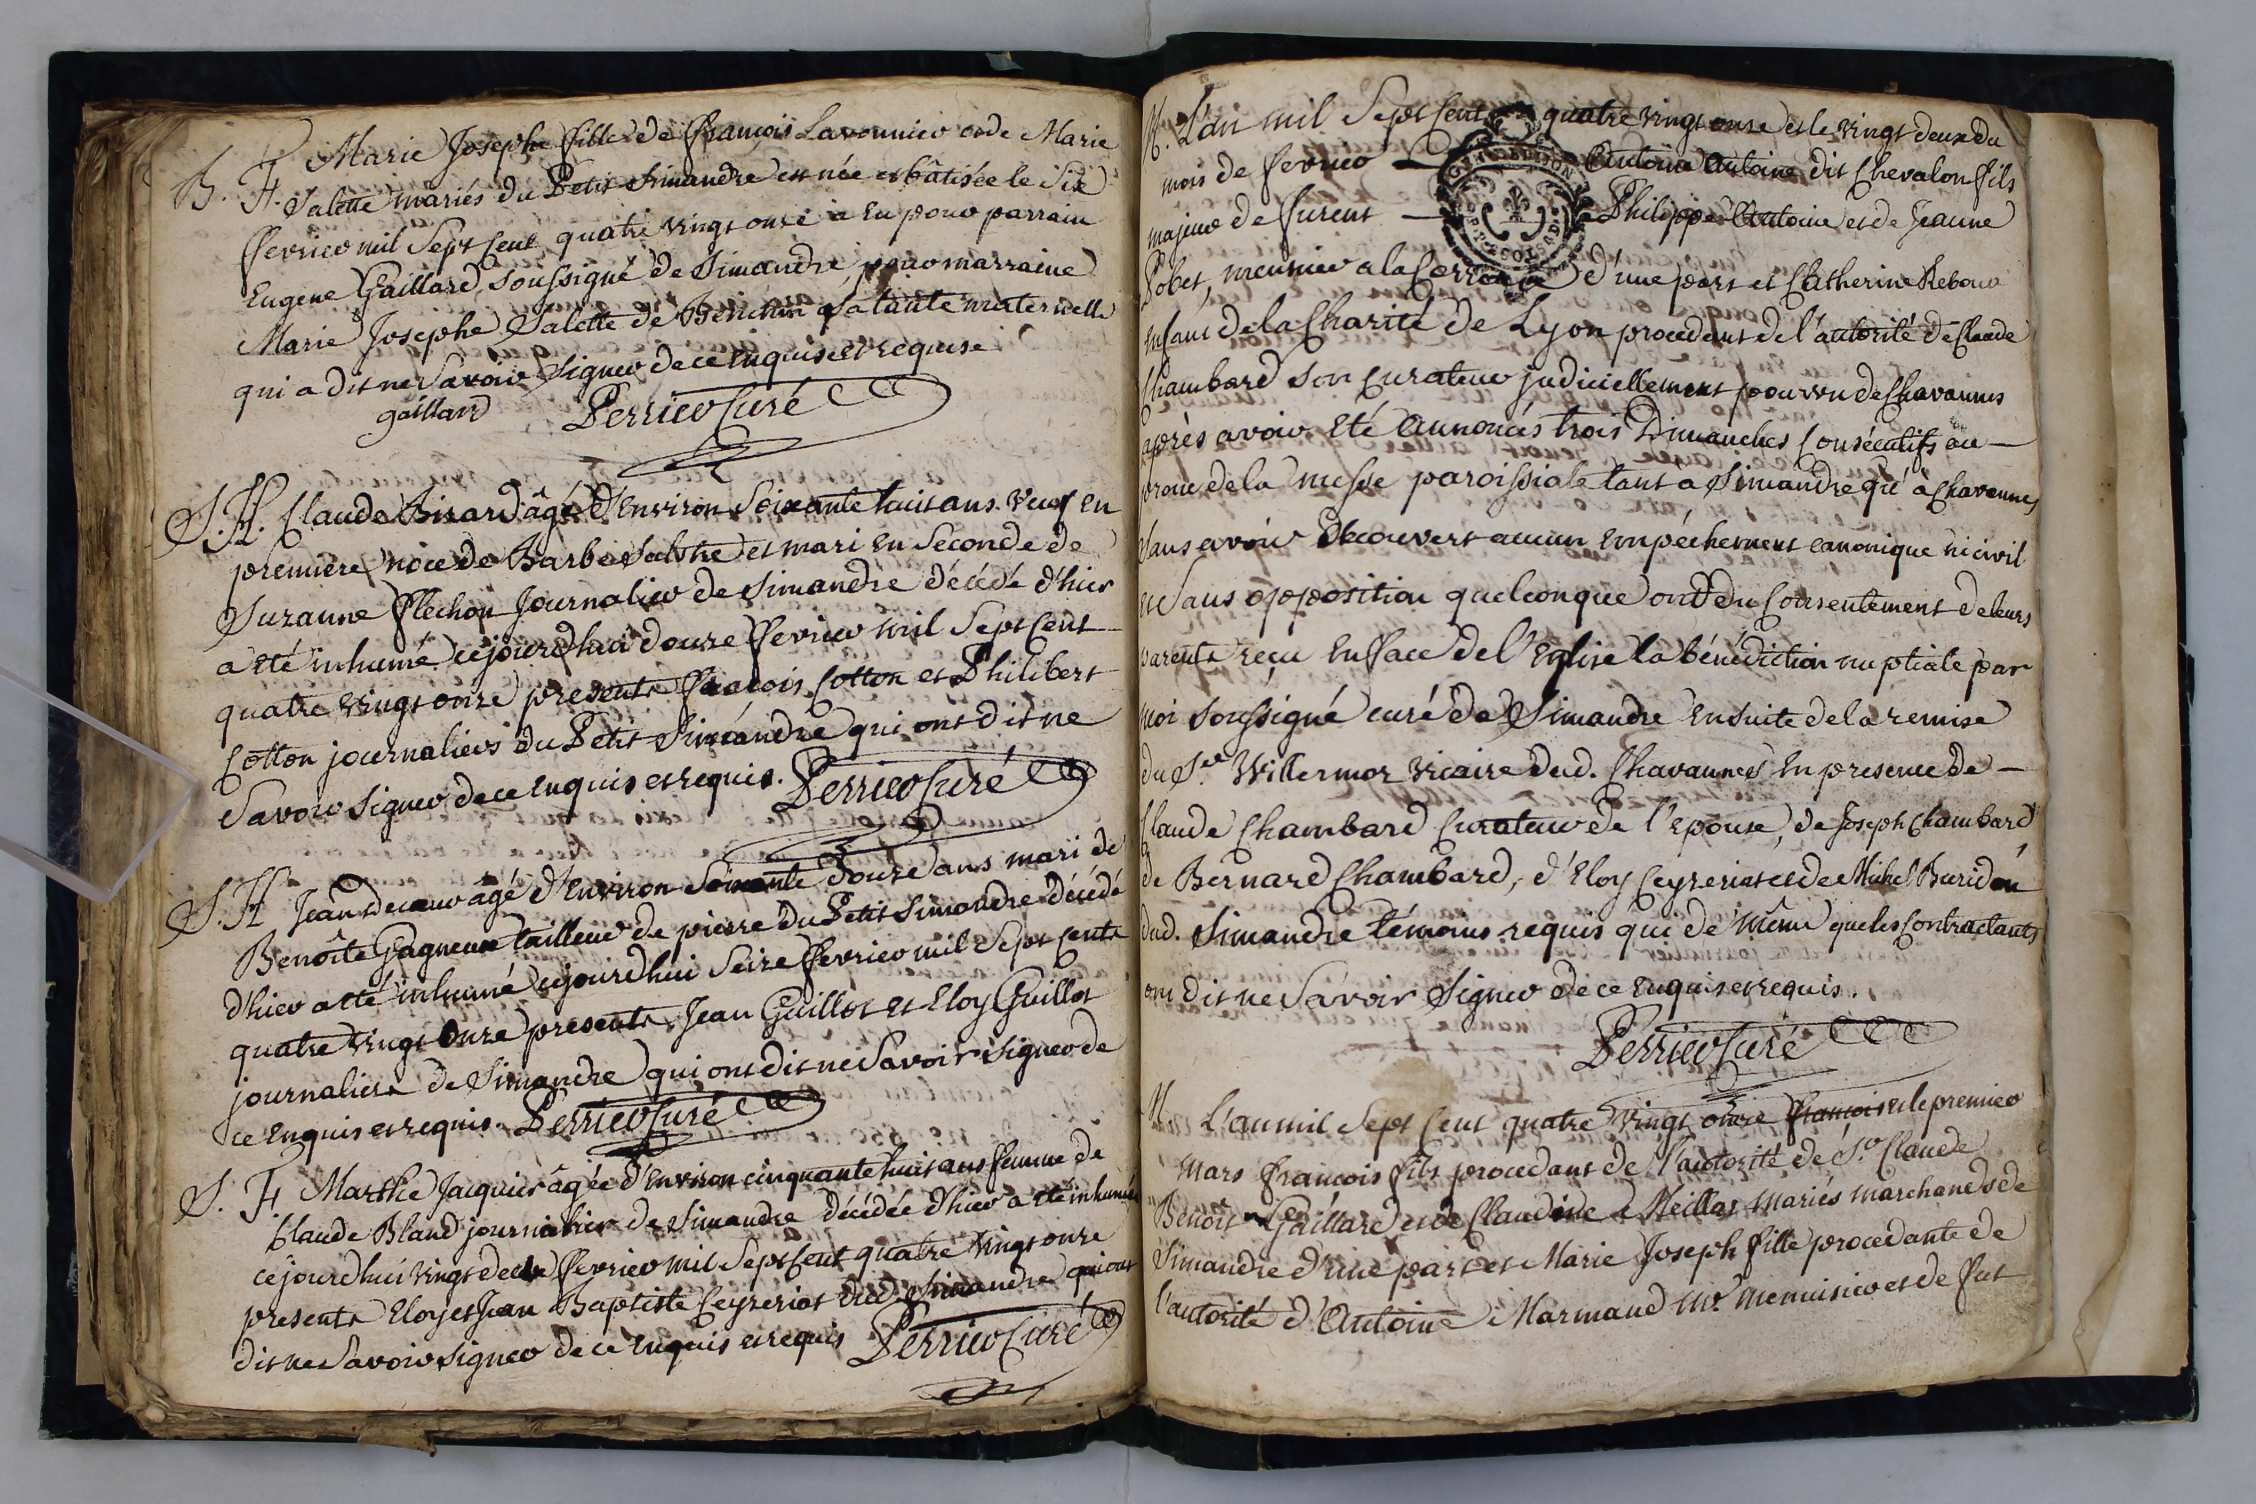 B. F. Marie Josephe fille de françois Lavennier et de Marie
Salette mariés du Petit Simandre est née et bâtisée le Six
fevrier mil Sept Cent quatre vingt onze a eu pour parrain
Eugene Gaillard soussigné de Simandre pour marraine
Marie Josephe Salette de sa tante maternelle
qui a dit ne Savoir Signer de ce enquise et requise
gaillard Perrier Curé
S. H. Claude Birard âgé d'Environ Soixante huit ans veuf en
premiere noce de Barbe et mari en Seconde de
Suzanne Flechon Journalier de Simandre décédé d'hier
a été inhumé cejourdhui douze fevrier mil Sept Cent
quatre vingt onze presents françois Cotton et Philibert
Cotton journaliers du Petit Simandre qui ont dit ne
Savoir Signer de ce enquis et requis. Perrier Curé
S. H Jean âgé d'Environ Soixante douze ans mari de
Benoîte Gagneux tailleur de pierre du Petit Simandre décédé
d'hier a été inhumé cejourdhui Seize fevrier mil Sept Cents
quatre vingt Onze presents Jean Guillot et Eloy Guillot
journaliers de Simandre qui ont dit ne Savoir Signer de
ce enquis et requis. Perrier Curé
S. F. Marthe Jacquier âgée d'Environ cinquante huit ans femme de
Claude Bland journalier de Simandre décédée d'hier a été inhumée
cejourdhui vingt deux fevrier mil Sept Cent quatre vingt onze
presents Eloy et Jean Baptiste Ceyzeriat dud. Simandre qui ont
dit ne Savoir Signer de ce enquis et requis Perrier Curé
M. L'an mil Sept Cent quatre vingt onze et le vingt deux du
mois de fevrier Antoine Antoine dit Chevalon fils
majeur de furent Philippe Antoine et de Jeanne
Pobet, meunier a la d'une part et Catherine Rebour
enfant de la Charité de Lyon procedant de l'autorité de Claude
Chambard Son Curateur judiciellement pourvu de Chavannes
après avoir été annoncés trois Dimanches Consécutifs au
prone de la messe paroissiale tant a Simandre qu'à Chavannes
Sans avoir decouvert aucun empéchement canonique ni civil
et Sans opposition quelconque ont du Consentement de leurs
parents reçu en face de l'Eglise la bénédiction nuptiale par
moi Soussigné curé de Simandre Ensuite de la remise
du Sr. Willermoz Vicaire dud. Chavannes En presence de
Claude Chambard Curateur de l'epouse, de Joseph Chambard
de Bernard Chambard, d'Eloy Ceyzeriat et de Michel Buridon
dud. Simandre témoins requis qui de même que les Contractants
ont dit ne Savoir Signer de ce enquis et requis.
Perrier Curé
M. L'an mil Sept Cent quatre vingt onze françois et le premier
mars françois fils procedant de l'autorité de Sr. Claude
Benoit Gaillard et de Claudine Meillat mariés marchands de
Simandre d'une part et Marie Joseph fille procedante de
l'autorité d'Antoine Marmand Mr. menuisier et de fut